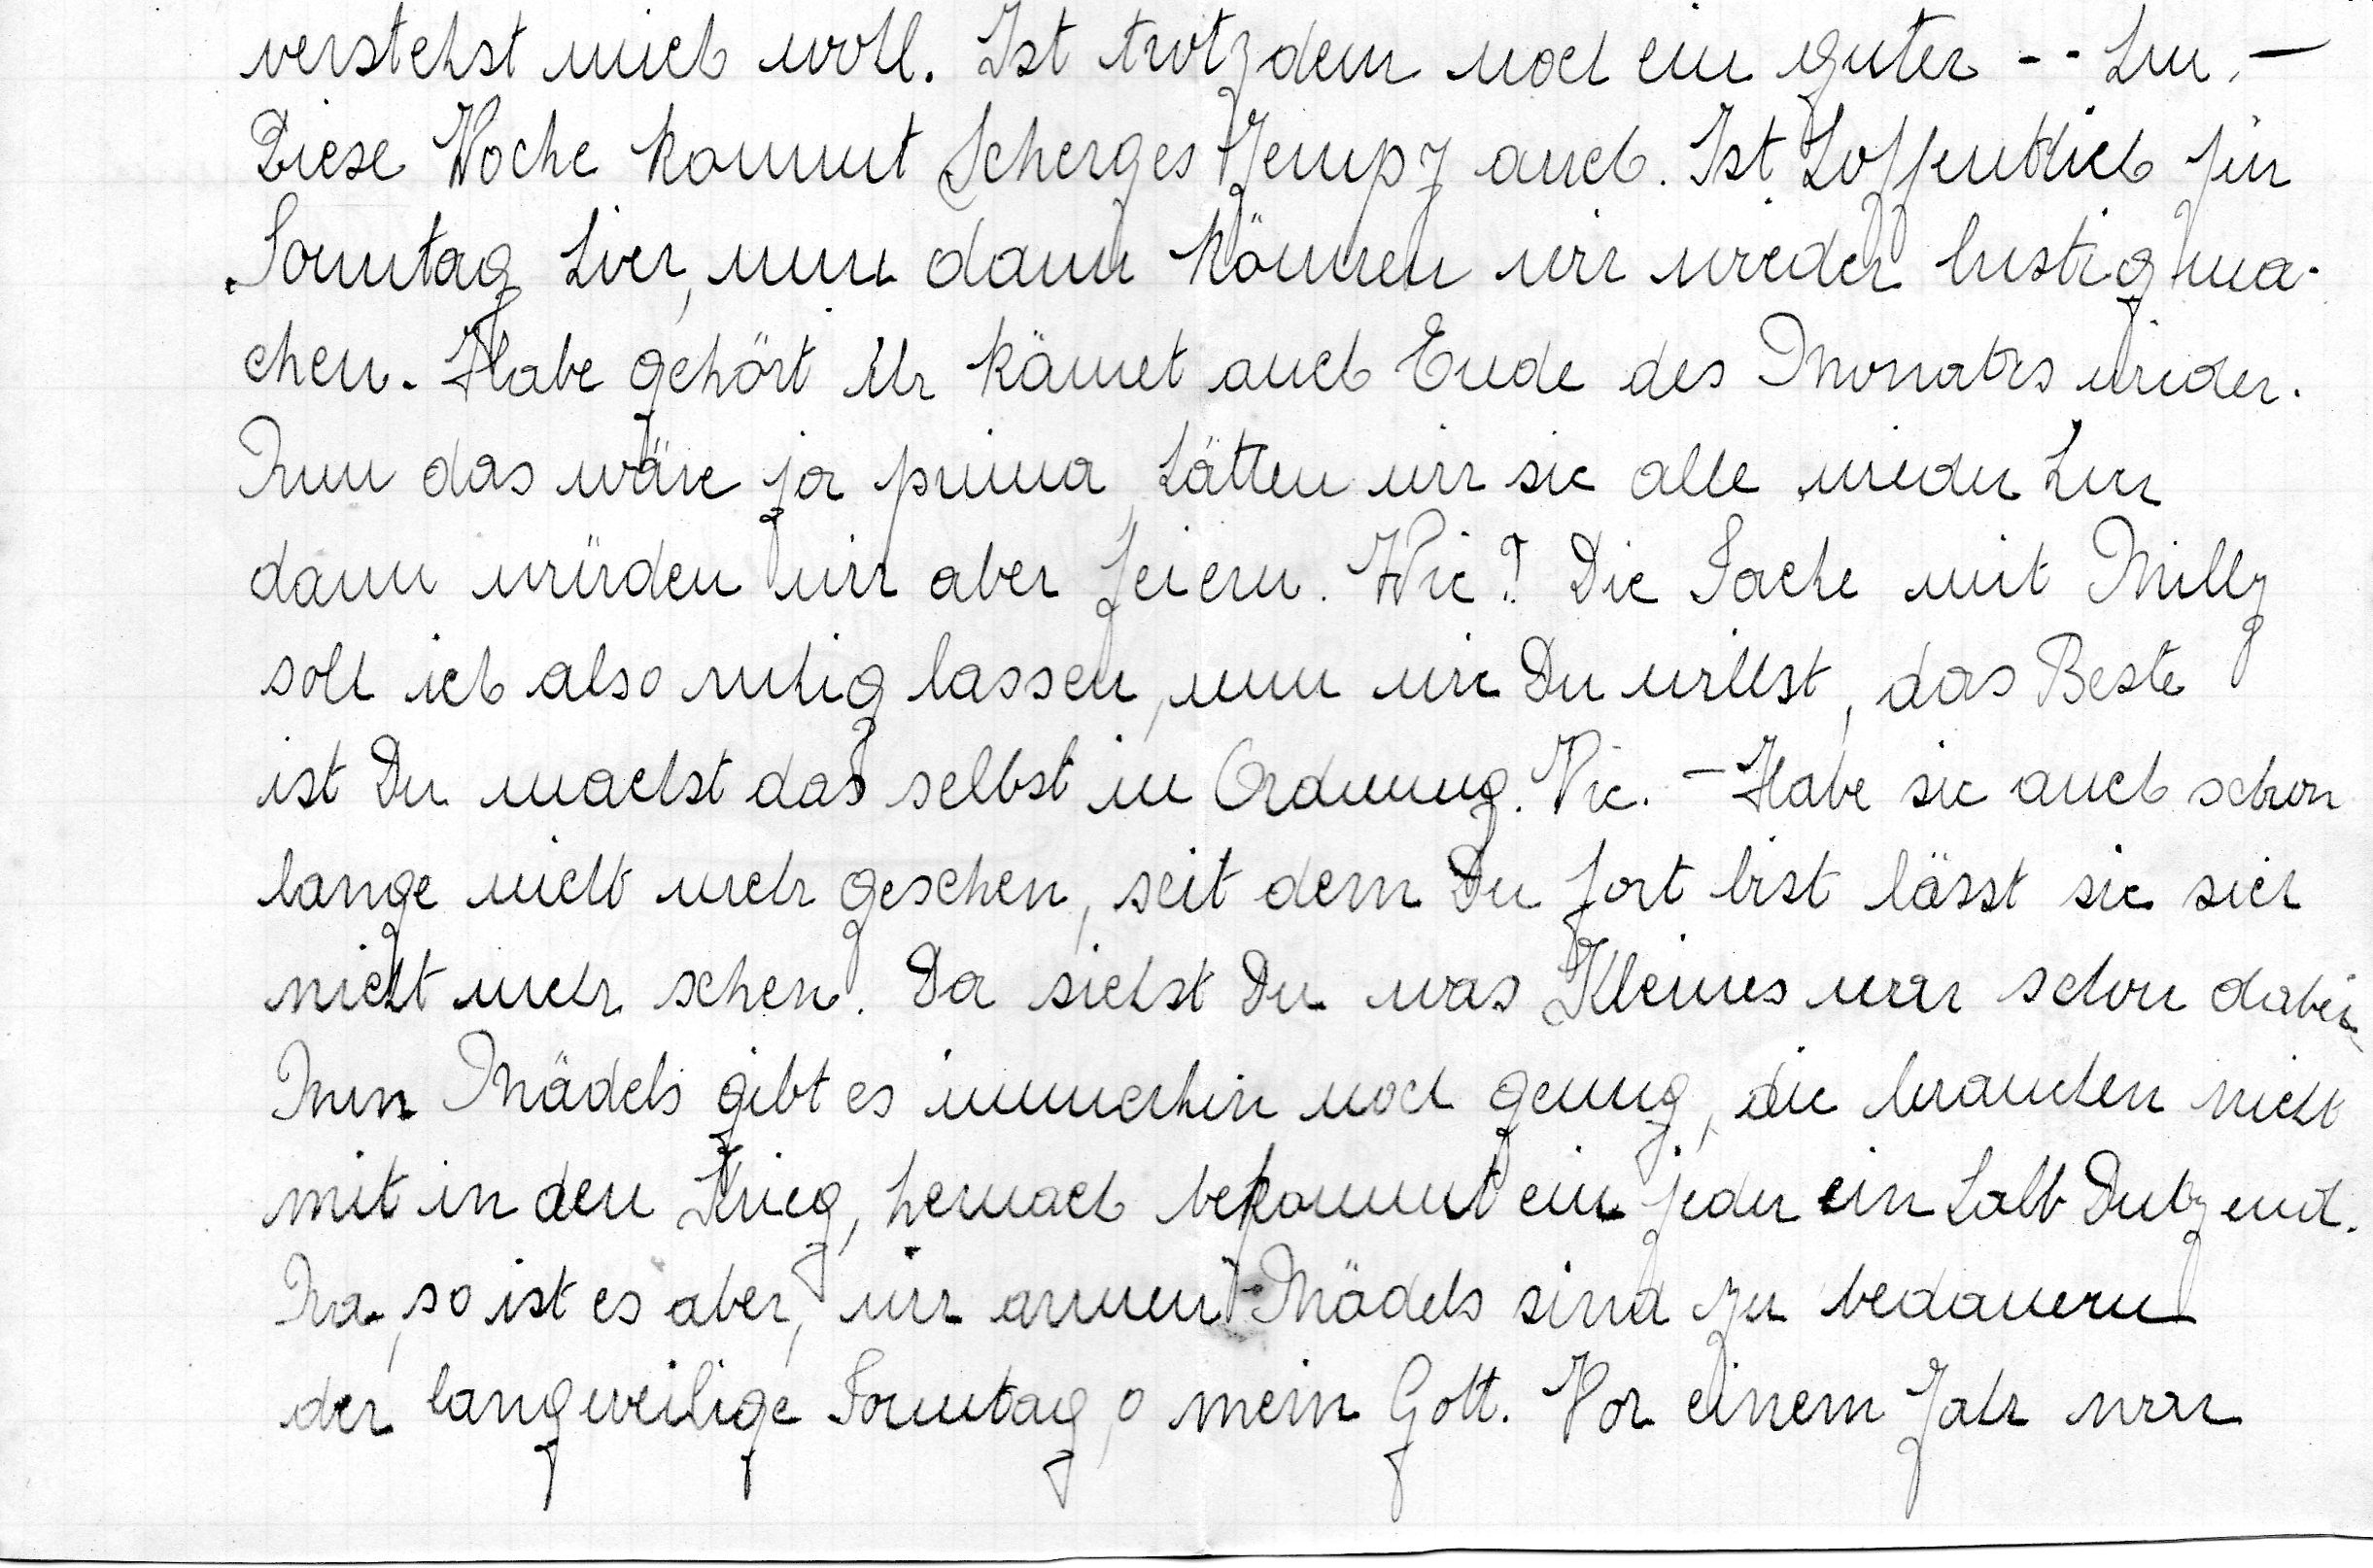 verstehst mich wohl. Ist trotzdem noch ein guter -- hm. -
Diese Woche kommt Scherges Jempy auch. Ist hoffentlich für
Sonntag hier, nun dann können wir wieder lustig ma-
chen. Habe gehört ihr kämet auch Ende des Monats wieder.
Nun das wäre ja prima, hätten wir sie alle wieder hier
dann würden wir aber feiern. Wie?! Die Sache mit Milly
soll ich also ruhig lassen, nun wie Du willst, das Beste
ist Du machst das selbst in Ordnung. Vic. - Habe sie auch schon
lange nicht mehr gesehen, seit dem Du fort bist lässt sie sich
nicht mehr sehen. Da siehst Du was Kleines war schon dabei
Nun Mädels gibt es immerhin noch genug, die brauchen nicht
mit in den Krieg, hernach bekommt ein jeder ein halb Dutzend.
Na, so ist es aber, wir armen Mädels sind zu bedauern
der langweilige Sonntag, o mein Gott. Vor einem Jahr war